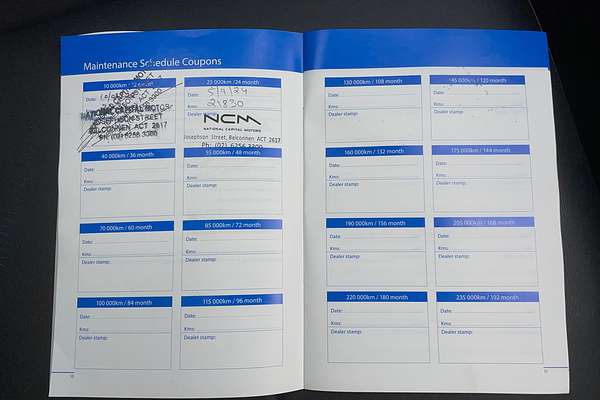 Maintenance Schedule Coupons
10 000km / 12 month
Date:
NATIONAL CAPITAL MOTORS
STREET
BELCONNEN ACT 2617
Ph: (02) 6256 3300
25 000km / 24 month
Date: 5/9/24
Kms: 21830
NCM
NATIONAL CAPITAL MOTORS
Josephson Street, Belconnen ACT 2617
Ph: (02) 6256 3300
40 000km / 36 month
Date:
Kms:
Dealer stamp:
55 000km / 48 month
Date:
Kms:
Dealer stamp:
70 000km / 60 month
Date:
Kms:
Dealer stamp:
85 000km / 72 month
Date:
Kms:
Dealer stamp:
100 000km / 84 month
Date:
Kms:
Dealer stamp:
115 000km / 96 month
Date:
Kms:
Dealer stamp:
130 000km / 108 month
Date:
Kms:
Dealer stamp:
145 000km / 120 month
Date:
Kms:
Dealer stamp:
160 000km / 132 month
Date:
Kms:
Dealer stamp:
175 000km / 144 month
Date:
Kms:
Dealer stamp:
190 000km / 156 month
Date:
Kms:
Dealer stamp:
205 000km / 168 month
Date:
Kms:
Dealer stamp:
220 000km / 180 month
Date:
Kms:
Dealer stamp:
235 000km / 192 month
Date:
Kms:
Dealer stamp: